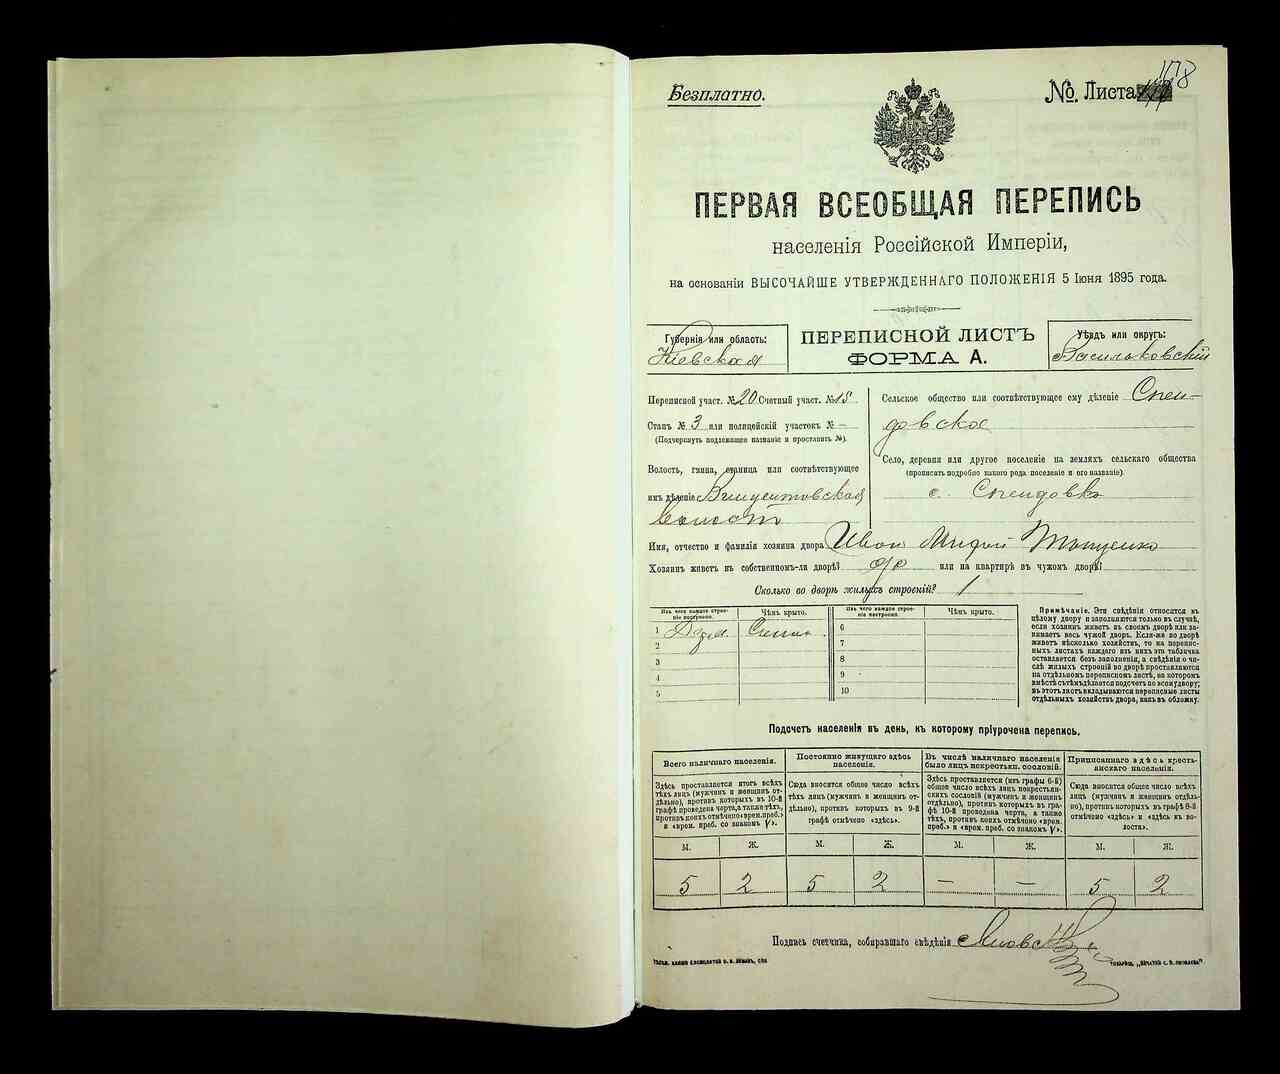 Безплатно.
№. Листа 178
ПЕРВАЯ ВСЕОБЩАЯ ПЕРЕПИСЬ
населенія Россійской Имперіи,
на основаніи ВЫСОЧАЙШЕ УТВЕРЖДЕННАГО ПОЛОЖЕНІЯ 5 Іюня 1895 года.
Губернія или область:
Кіевская
ПЕРЕПИСНОЙ ЛИСТЪ
ФОРМА А.
Уѣздъ или округъ:
Васильковскій
Переписной участ. № 20 Счетный участ. № 15
Станъ № 3 или полицейскій участокъ № —
(Подчеркнуть подлежащее названіе и проставить №).
Волость, гмина, станица или соотвѣтствующее
имъ дѣленіе Винцентовская
волость
Сельское общество или соотвѣтствующее ему дѣленіе
Село, деревня или другое поселеніе на земляхъ сельскаго общества
(прописать подробно какого рода поселеніе и его названіе).
с.
Имя, отчество и фамилія хозяина двора Иван
Хозяинъ живетъ въ собственномъ-ли дворѣ? или на квартирѣ въ чужомъ дворѣ?
Сколько во дворѣ жилыхъ строеній? 1
Изъ чего каждое строе-
ніе построено.
Чѣмъ крыто.
Изъ чего каждое строе-
ніе построено.
Чѣмъ крыто.
1
2
3
4
5
6
7
8
9
10
Примѣчаніе. Эти свѣдѣнія относятся къ
цѣлому двору и заполняются только въ случаѣ,
если хозяинъ живетъ въ своемъ дворѣ или за-
нимаетъ весь чужой дворъ. Если-же во дворѣ
живетъ нѣсколько хозяйствъ, то на перепис-
ныхъ листахъ каждаго изъ нихъ эта табличка
оставляется безъ заполненія, а свѣдѣнія о чи-
слѣ жилыхъ строеній во дворѣ проставляются
на отдѣльномъ переписномъ листѣ, на которомъ
вмѣстѣ съ тѣмъ дѣлается подсчетъ по всему двору;
въ этотъ листъ вкладываются переписные листы
отдѣльныхъ хозяйствъ двора, какъ въ обложку.
Подсчетъ населенія въ день, къ которому пріурочена перепись.
Всего наличнаго населенія.
Здѣсь проставляется итогъ всѣхъ
тѣхъ лицъ (мужчинъ и женщинъ от-
дѣльно), противъ которыхъ въ 10-й
графѣ проведена черта, а также тѣхъ,
противъ коихъ отмѣчено «врем. преб.»
и «врем. преб. со знакомъ V».
Постоянно живущаго здѣсь
населенія.
Сюда вносится общее число всѣхъ
тѣхъ лицъ (мужчинъ и женщинъ от-
дѣльно), противъ которыхъ въ 9-й
графѣ отмѣчено «здѣсь».
Въ числѣ наличнаго населенія
было лицъ некрестьян. сословій.
Здѣсь проставляется (изъ графы 6-й)
общее число всѣхъ лицъ некрестьян-
скихъ сословій (мужчинъ и женщинъ
отдѣльно), противъ которыхъ въ гра-
фѣ 10-й проведена черта, а также
тѣхъ, противъ коихъ отмѣчено «врем.
преб.» и «врем. преб. со знакомъ V».
Приписаннаго здѣсь кресть-
янскаго населенія.
Сюда вносится общее число всѣхъ
лицъ (мужчинъ и женщинъ отдѣль-
но), противъ которыхъ въ графѣ 8-й
отмѣчено «здѣсь» и «здѣсь въ во-
лости».
М. Ж. М. Ж. М. Ж. М. Ж.
5 2 5 2 — — 5 2
Подпись счетчика, собиравшаго свѣдѣнія